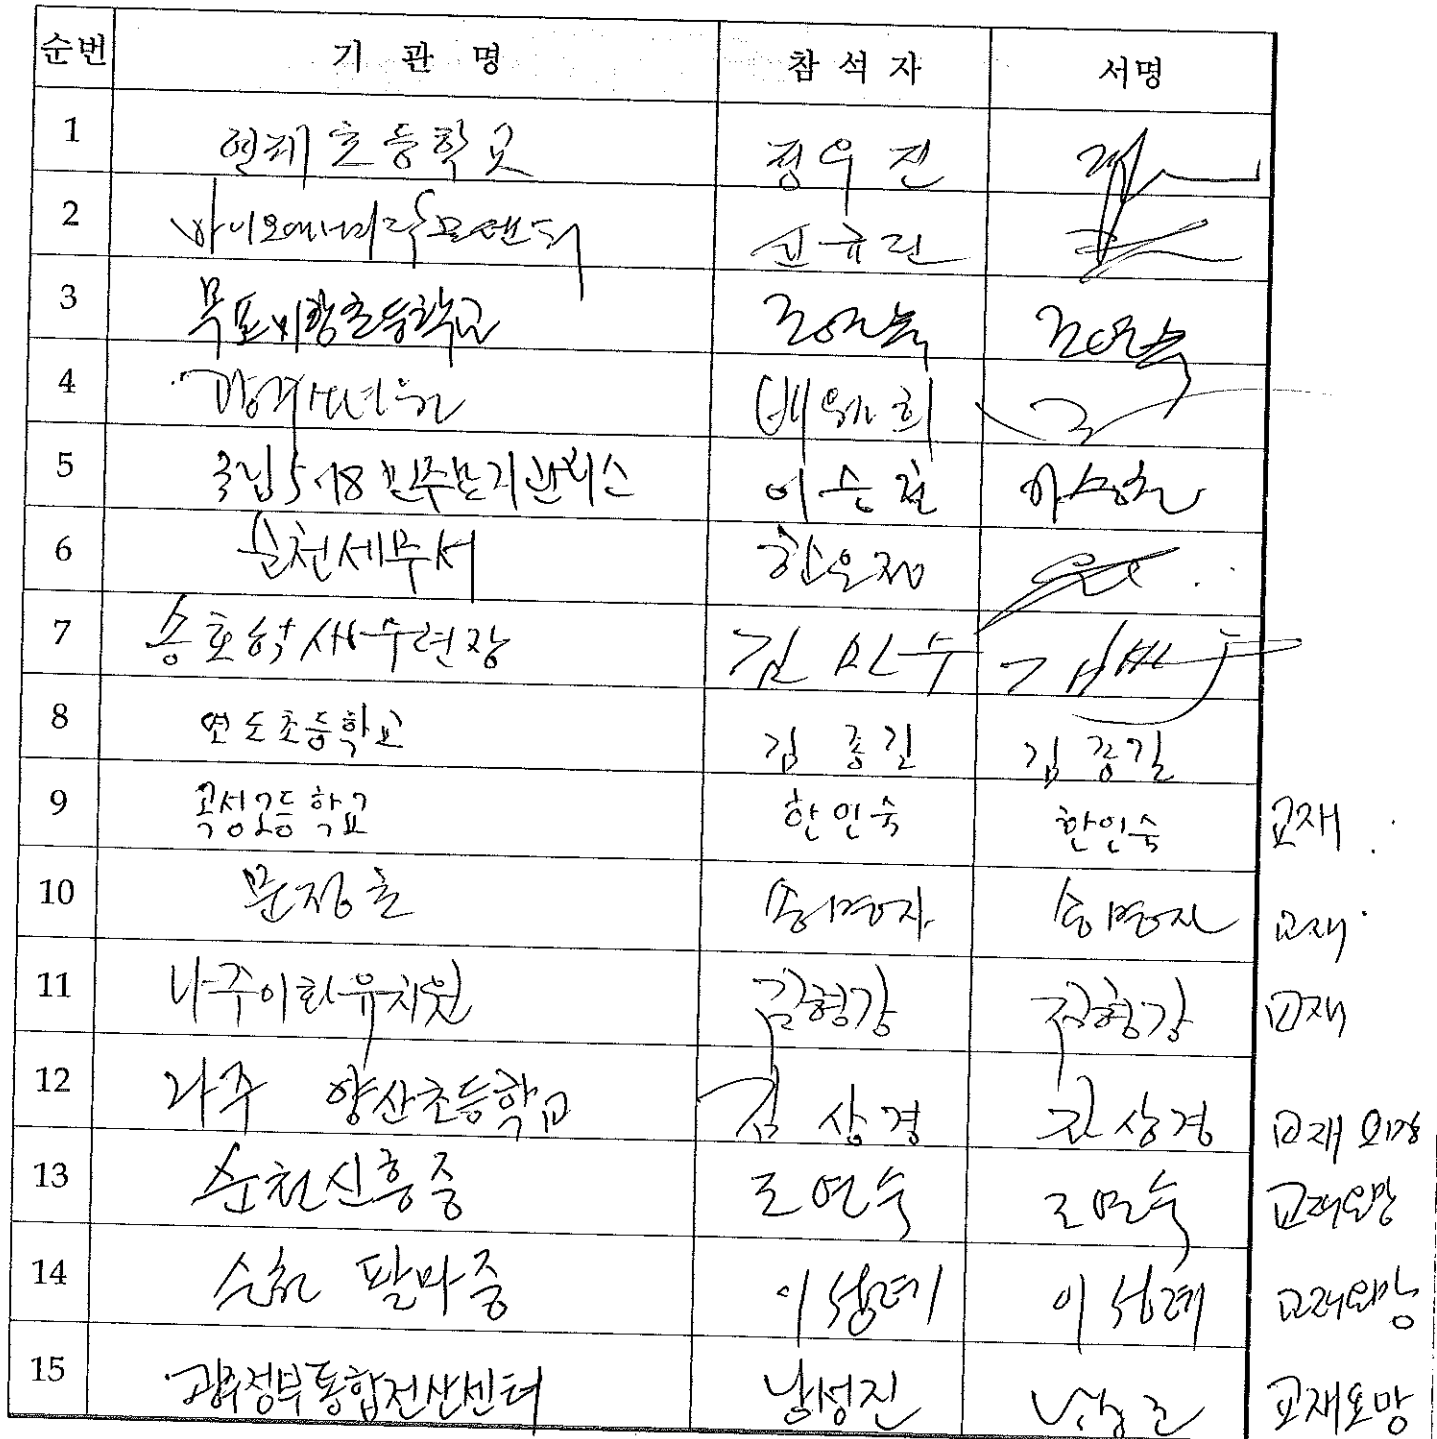 순번 기 관 명 참 석 자 서명
1 연제초등학교 정우진
2 바이오에너지작물센터 신규린
3 목포미항초등학교
4 배 희
5 국립5·18민주묘지관리소 이승철 이승철
6 순천세무서 한은정
7 송호학생수련장 김민수
8 연도초등학교 김종길 김종길
9 곡성고등학교 한인숙 한인숙 교재
10 문정초 송명자 송명자 교재
11 나주이화유치원 김형강 김형강 교재
12 나주 양산초등학교 김상경 김상경 교재
13 순천신흥중 조연숙 조연숙 교재요망
14 순천 팔마중 이성례 이성례 교재요망
15 광주정부통합전산센터 남성진 교재요망